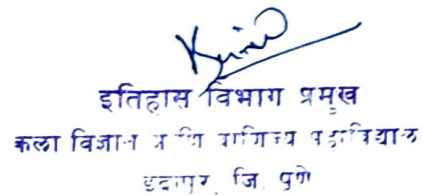 इतिहास विभाग प्रमुख
कला विज्ञान आणि वाणिज्य महाविद्यालय
इंदापुर जि. पुणे